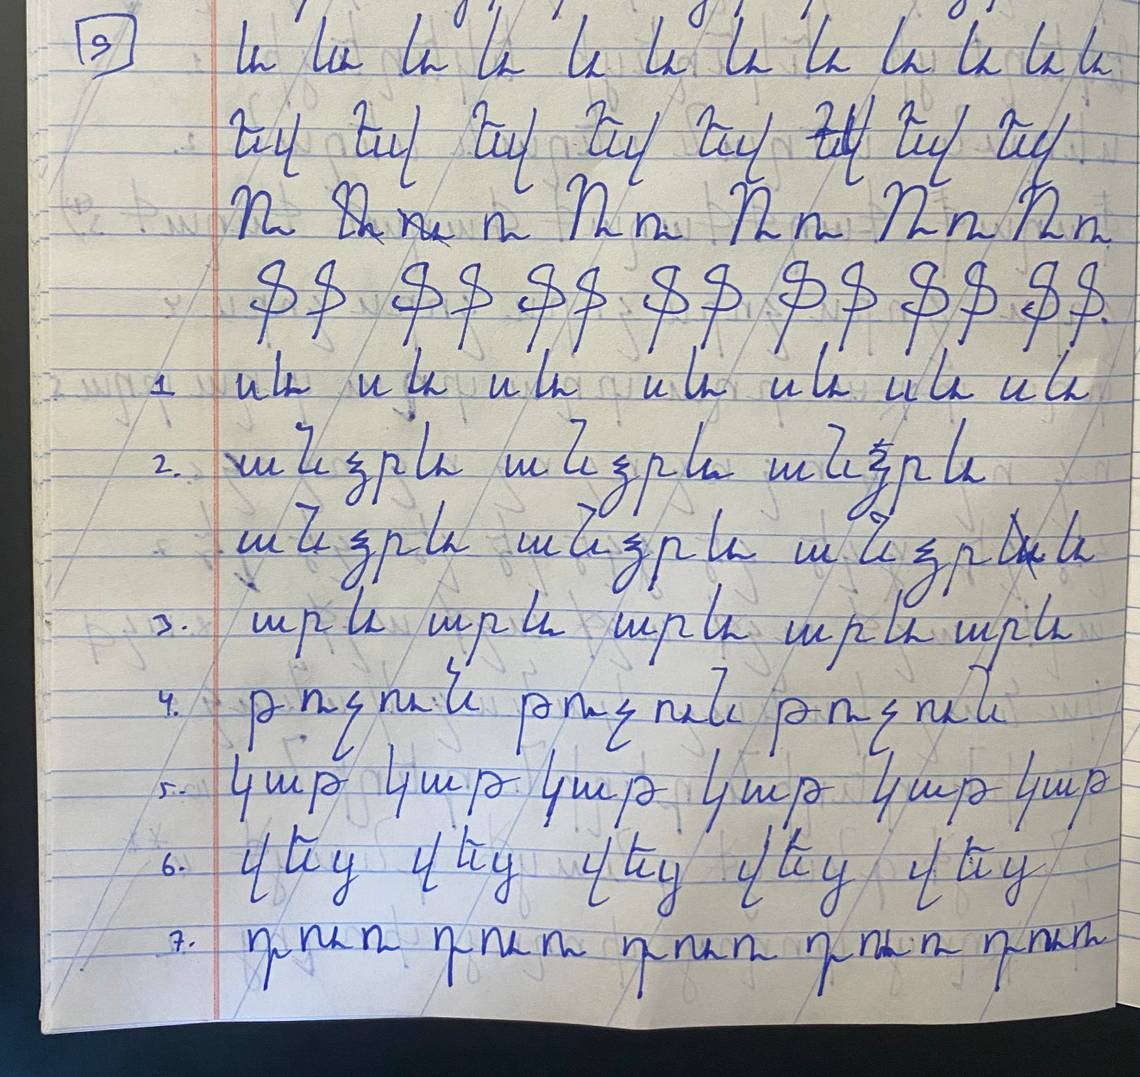 9 և և և և և և և և և և և և
Եվ Եվ Եվ Եվ Եվ Եվ Եվ
Ռ ռ ռ Ռ ռ Ռ ռ Ռ ռ Ռ ռ
Ֆ ֆ Ֆ ֆ Ֆ ֆ Ֆ ֆ Ֆ ֆ Ֆ ֆ Ֆ ֆ.
1 սև սև սև սև սև սև սև
2. անձրև անձրև անձրև
անձրև անձրև անձրև
3. արև արև արև արև արև
4. թռչուն թռչուն թռչուն
5. կաթ կաթ կաթ կաթ կաթ կաթ
6. վեց վեց վեց վեց վեց
7. դուռ դուռ դուռ դուռ դուռ